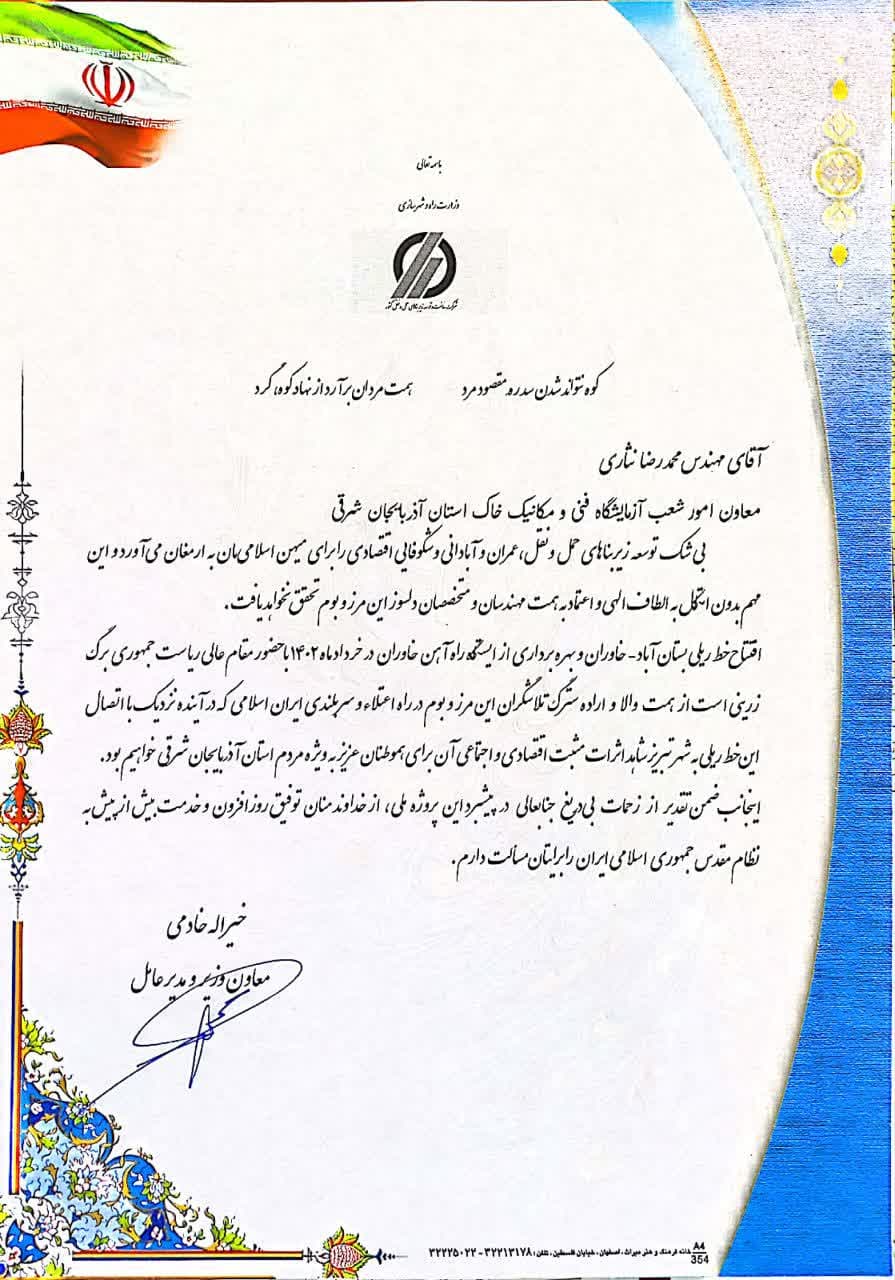 باسمه تعالی
وزارت راه و شهرسازی
شرکت ساخت و توسعه زیربناهای حمل و نقل کشور
کوه نتواند شدن سد ره مقصود مرد همت مردان برآرد از نهاد کوه، گرد
آقای مهندس محمدرضا نثاری
معاون امور شعب آزمایشگاه فنی و مکانیک خاک استان آذربایجان شرقی
بی شک توسعه زیربناهای حمل و نقل، عمران و آبادانی و شکوفایی اقتصادی را برای میهن اسلامی‌مان به ارمغان می‌آورد و این
مهم بدون اتکال به الطاف الهی و اعتماد به همت مهندسان و متخصصان دلسوز این مرز و بوم تحقق نخواهد یافت.
افتتاح خط ریلی بستان آباد- خاوران و بهره برداری از ایستگاه راه آهن خاوران در خرداد ماه ۱۴۰۲ با حضور مقام عالی ریاست جمهوری برگ
زرینی است از همت والا و اراده سترگ تلاشگران این مرز و بوم در راه اعتلاء و سربلندی ایران اسلامی که در آینده نزدیک با اتصال
این خط ریلی به شهر تبریز شاهد اثرات مثبت اقتصادی و اجتماعی آن برای هموطنان عزیز به ویژه مردم استان آذربایجان شرقی خواهیم بود.
اینجانب ضمن تقدیر از زحمات بی‌دریغ جنابعالی در پیشبرد این پروژه ملی، از خداوند منان توفیق روزافزون و خدمت بیش از پیش به
نظام مقدس جمهوری اسلامی ایران را برایتان مسألت دارم.
خیراله خادمی
معاون وزیر و مدیرعامل
A4
354
خانه فرهنگ و هنر میراث، اصفهان، خیابان فلسطین، تلفن: ۳۲۲۱۳۱۷۸ - ۳۲۲۲۵۰۲۲